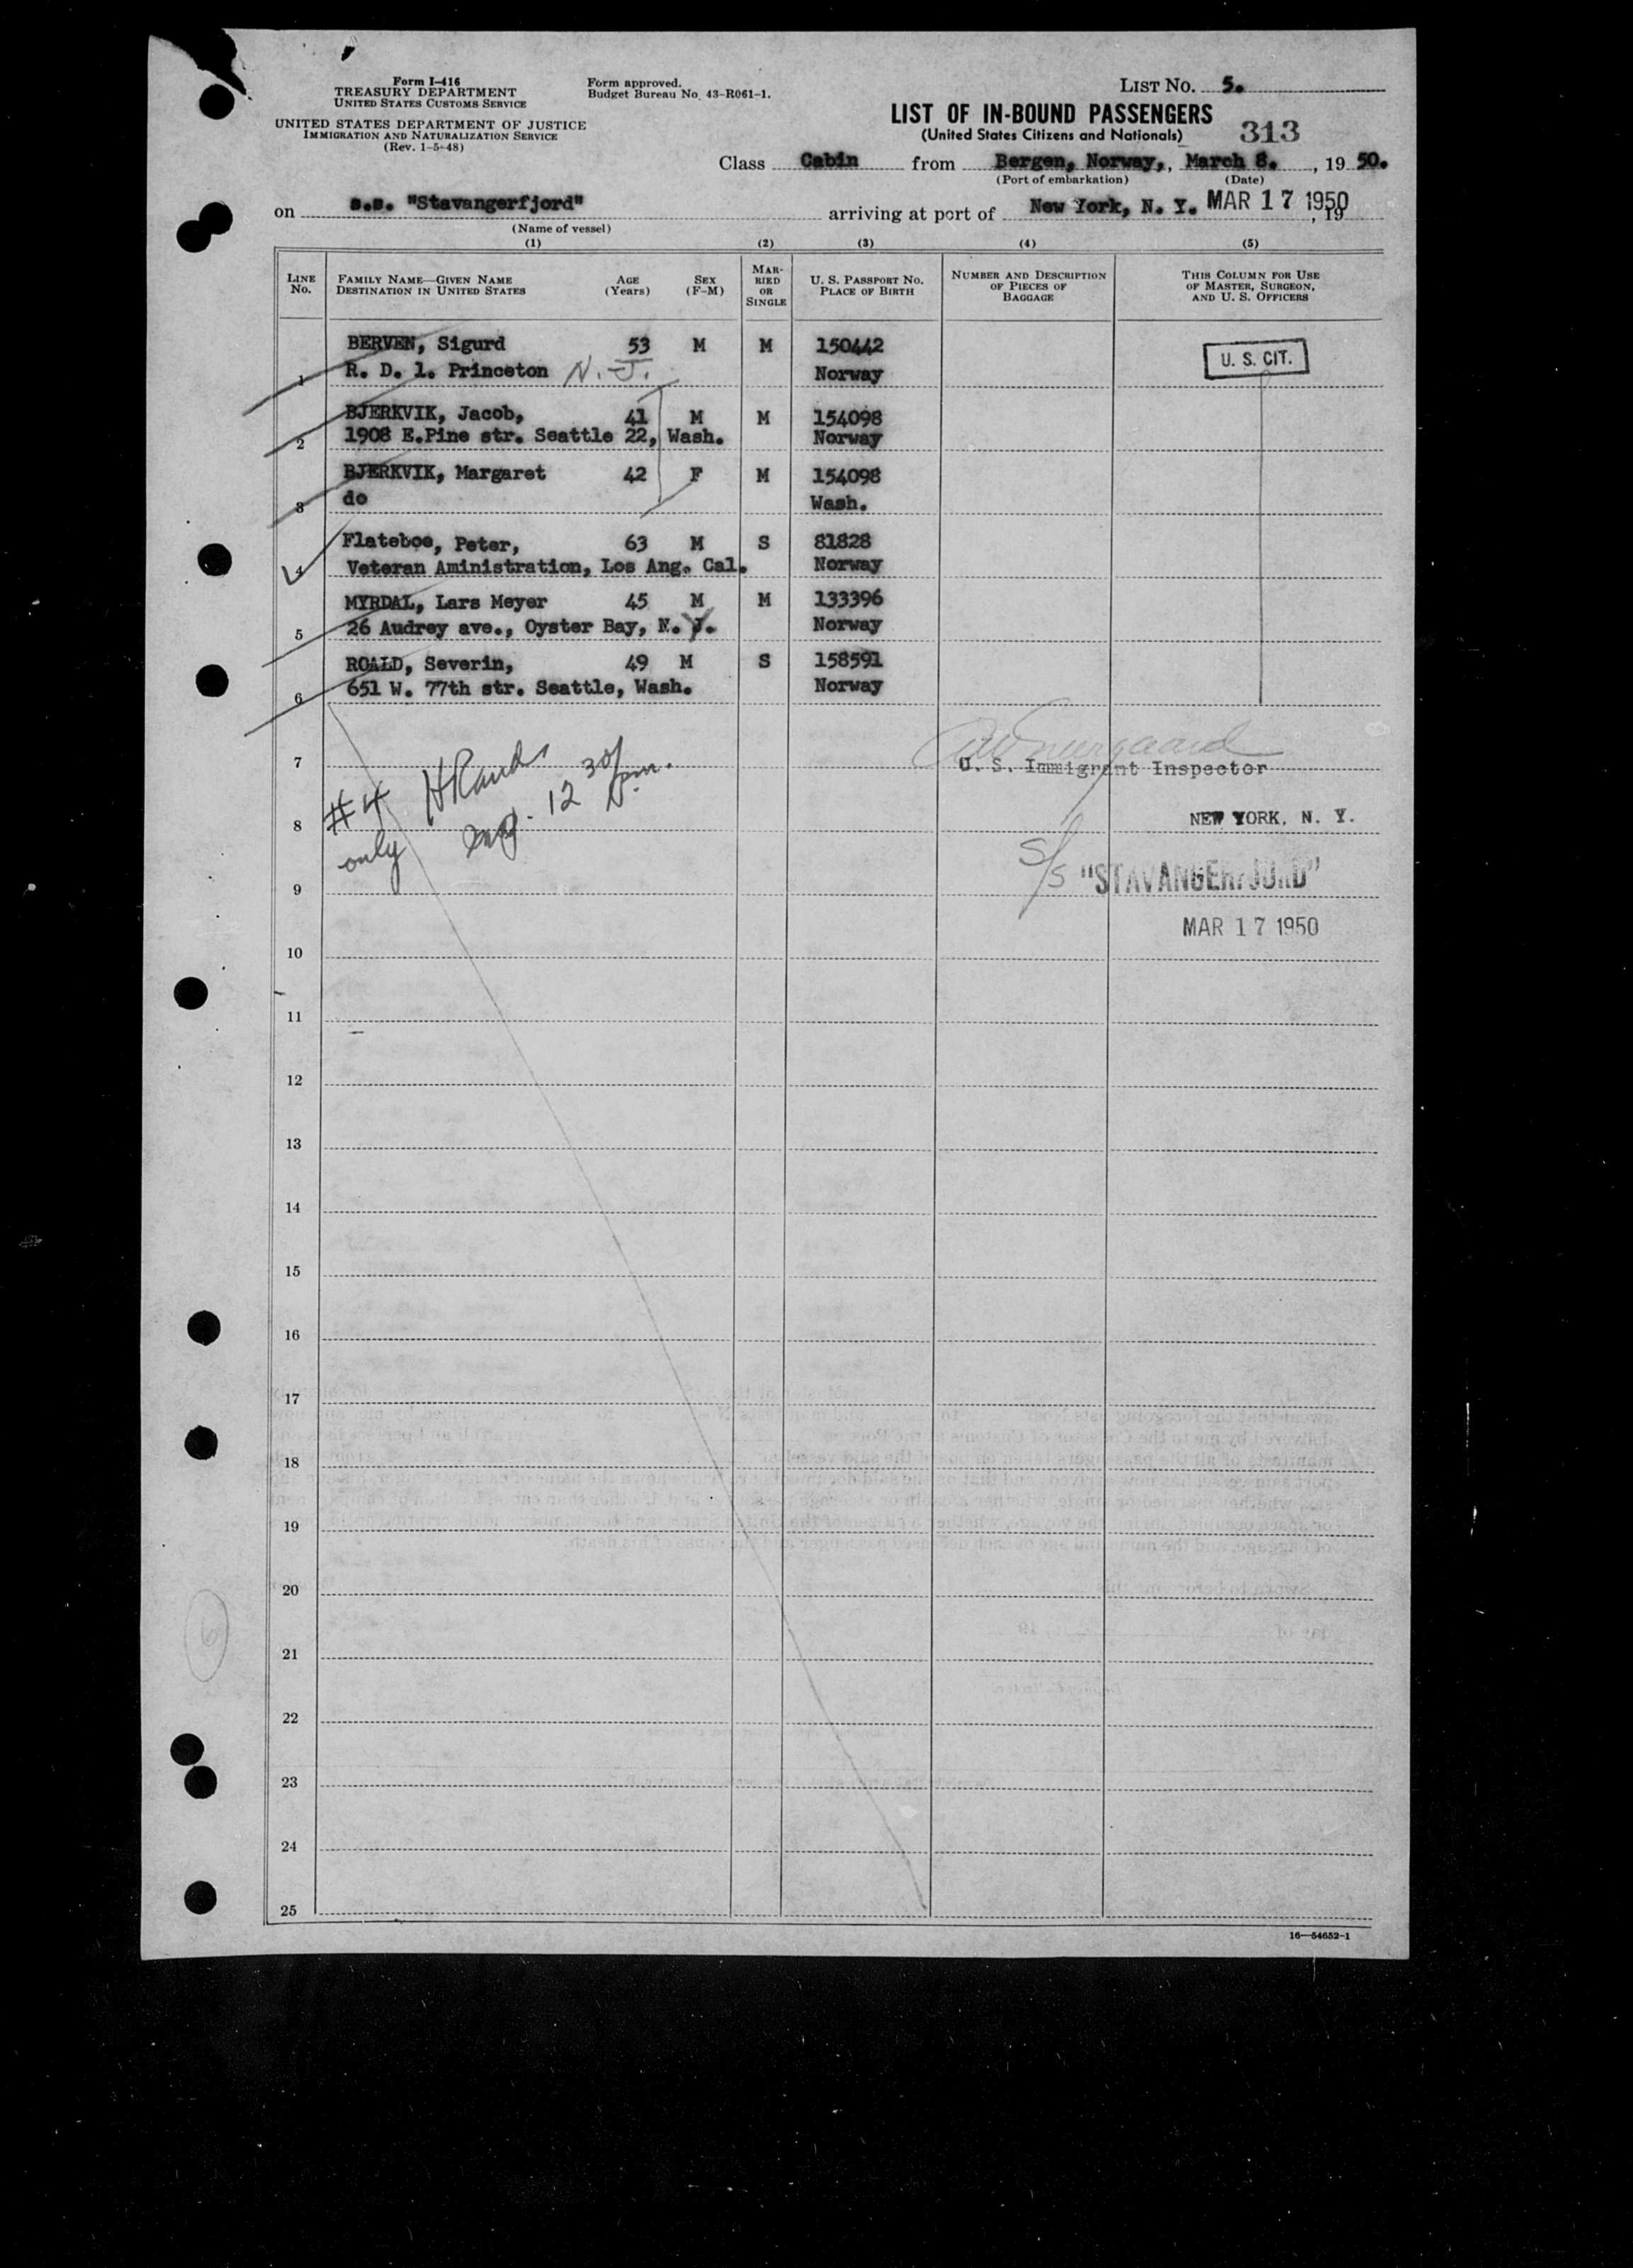 Form I-416
TREASURY DEPARTMENT
UNITED STATES CUSTOMS SERVICE
UNITED STATES DEPARTMENT OF JUSTICE
IMMIGRATION AND NATURALIZATION SERVICE
(Rev. 1-5-48)
Form approved.
Budget Bureau No. 43-R061-1.
LIST NO. 5.
LIST OF IN-BOUND PASSENGERS
(United States Citizens and Nationals)
313
Class Cabin from Bergen, Norway,, March 8. , 19 50.
(Port of embarkation) (Date)
on s.s. "Stavangerfjord" arriving at port of New York, N. Y. MAR 17 1950 , 19
(Name of vessel)
(1) (2) (3) (4) (5)
LINE No. FAMILY NAME—GIVEN NAME DESTINATION IN UNITED STATES AGE (Years) SEX (F-M) MARRIED OR SINGLE U. S. PASSPORT NO. PLACE OF BIRTH NUMBER AND DESCRIPTION OF PIECES OF BAGGAGE THIS COLUMN FOR USE OF MASTER, SURGEON, AND U. S. OFFICERS
BERVEN, Sigurd 53 M M 150442 U. S. CIT.
1 R. D. 1. Princeton N. J. Norway
BJERKVIK, Jacob, 41 M M 154098
2 1908 E.Pine str. Seattle 22, Wash. Norway
BJERKVIK, Margaret 42 F M 154098
3 do Wash.
Flateboe, Peter, 63 M S 81828
4 Veteran Aministration, Los Ang. Cal. Norway
MYRDAL, Lars Meyer 45 M M 133396
5 26 Audrey ave., Oyster Bay, N. Y. Norway
ROALD, Severin, 49 M S 158591
6 651 W. 77th str. Seattle, Wash. Norway
7 U. S. Immigrant Inspector
#4 only
12 30 pm.
8 NEW YORK, N. Y.
9 S/S "STAVANGERFJORD"
MAR 17 1950
10
11
12
13
14
15
16
17
18
19
20
21
22
23
24
25
6
16—54652-1